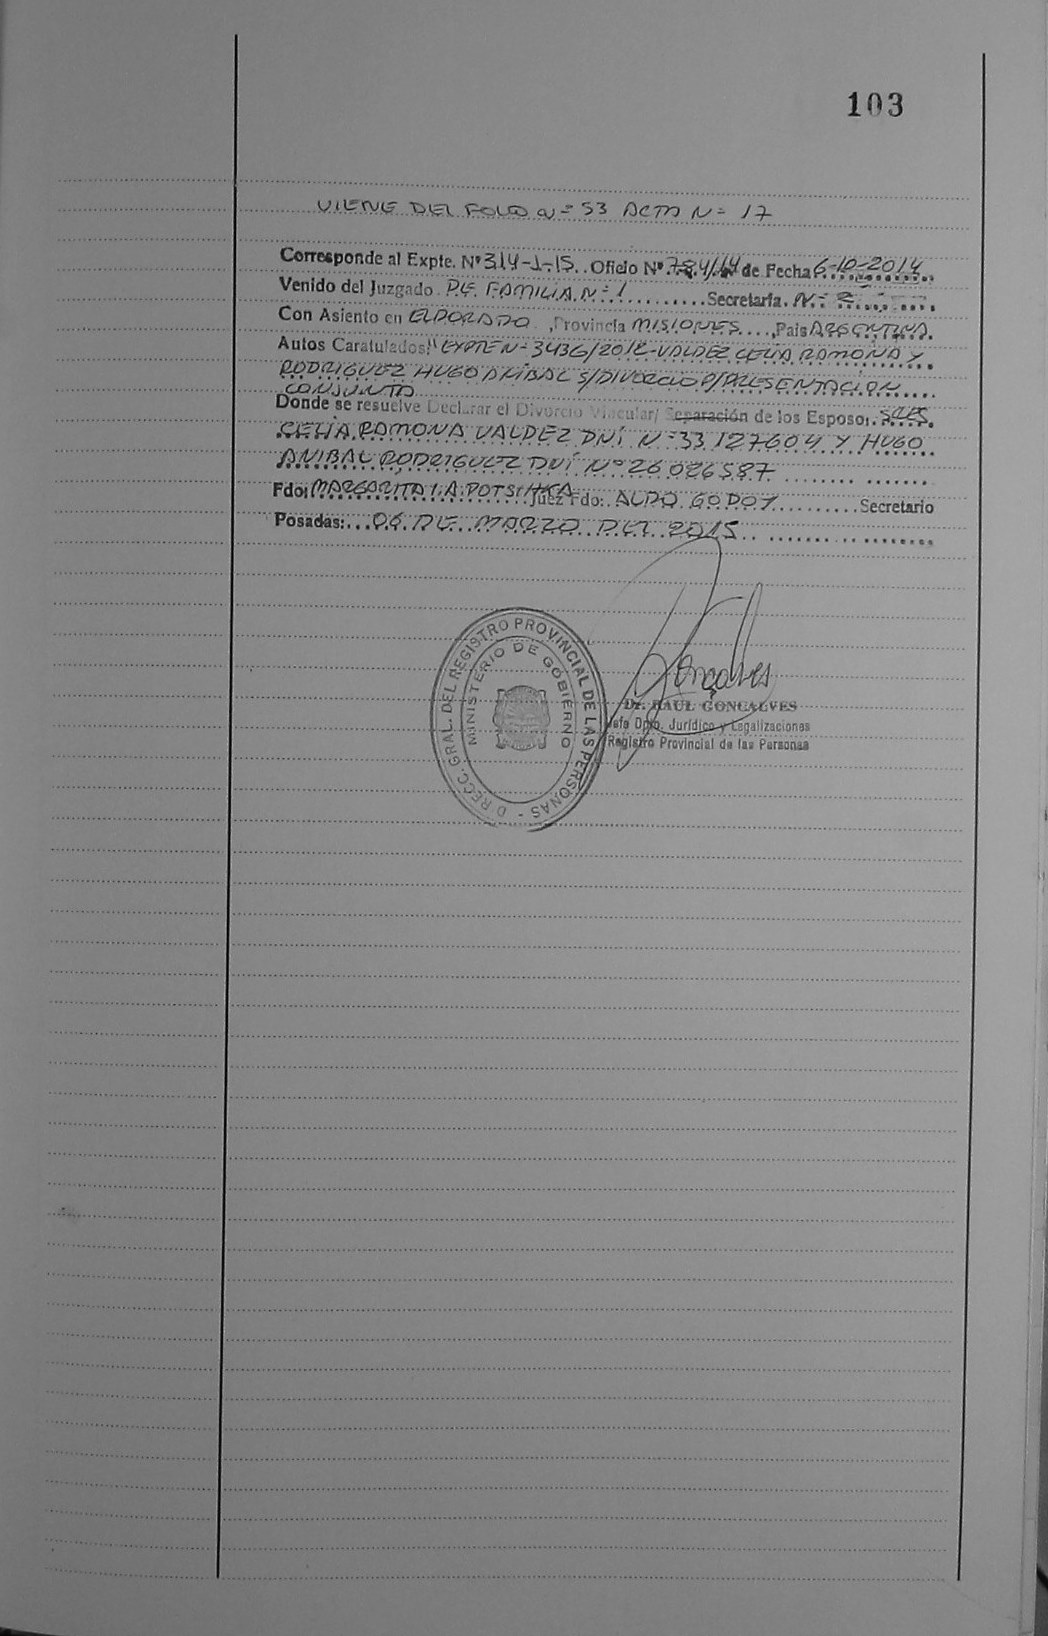 103
VIENE DEL FOLIO N= 53 ACTA N= 17
Corresponde al Expte. Nº 314-J-15.. Oficio Nº 784/14 de Fecha 6-10-2014
Venido del Juzgado DE FAMILIA N=1 Secretaría. N= 2
Con Asiento en ELDORADO, Provincia MISIONES, País ARGENTINA.
Autos Caratulados: "EXPTE N= 3436/2012-VALDEZ CELIA RAMONA Y
RODRIGUEZ HUGO ANIBAL S/DIVORCIO P/PRESENTACION
CONJUNTA
Donde se resuelve Declarar el Divorcio Vincular/ Separación de los Esposos:
CELIA RAMONA VALDEZ DNI N=33127604 Y HUGO
ANIBAL RODRIGUEZ DNI Nº 26026587
Fdo: MARGARITA A. POTSCHKA Juez Fdo: ALDO GODOY Secretario
Posadas: 06 DE MARZO DEL 2015
DIRECC. GRAL. DEL REGISTRO PROVINCIAL DE LAS PERSONAS -
MINISTERIO DE GOBIERNO
Goncalves
Dr. RAUL GONCALVES
Jefe Dpto. Jurídico y Legalizaciones
Registro Provincial de las Personas